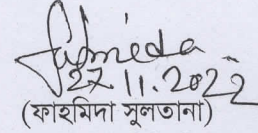 Fahmeda
27.11.2022
(ফাহমিদা সুলতানা)